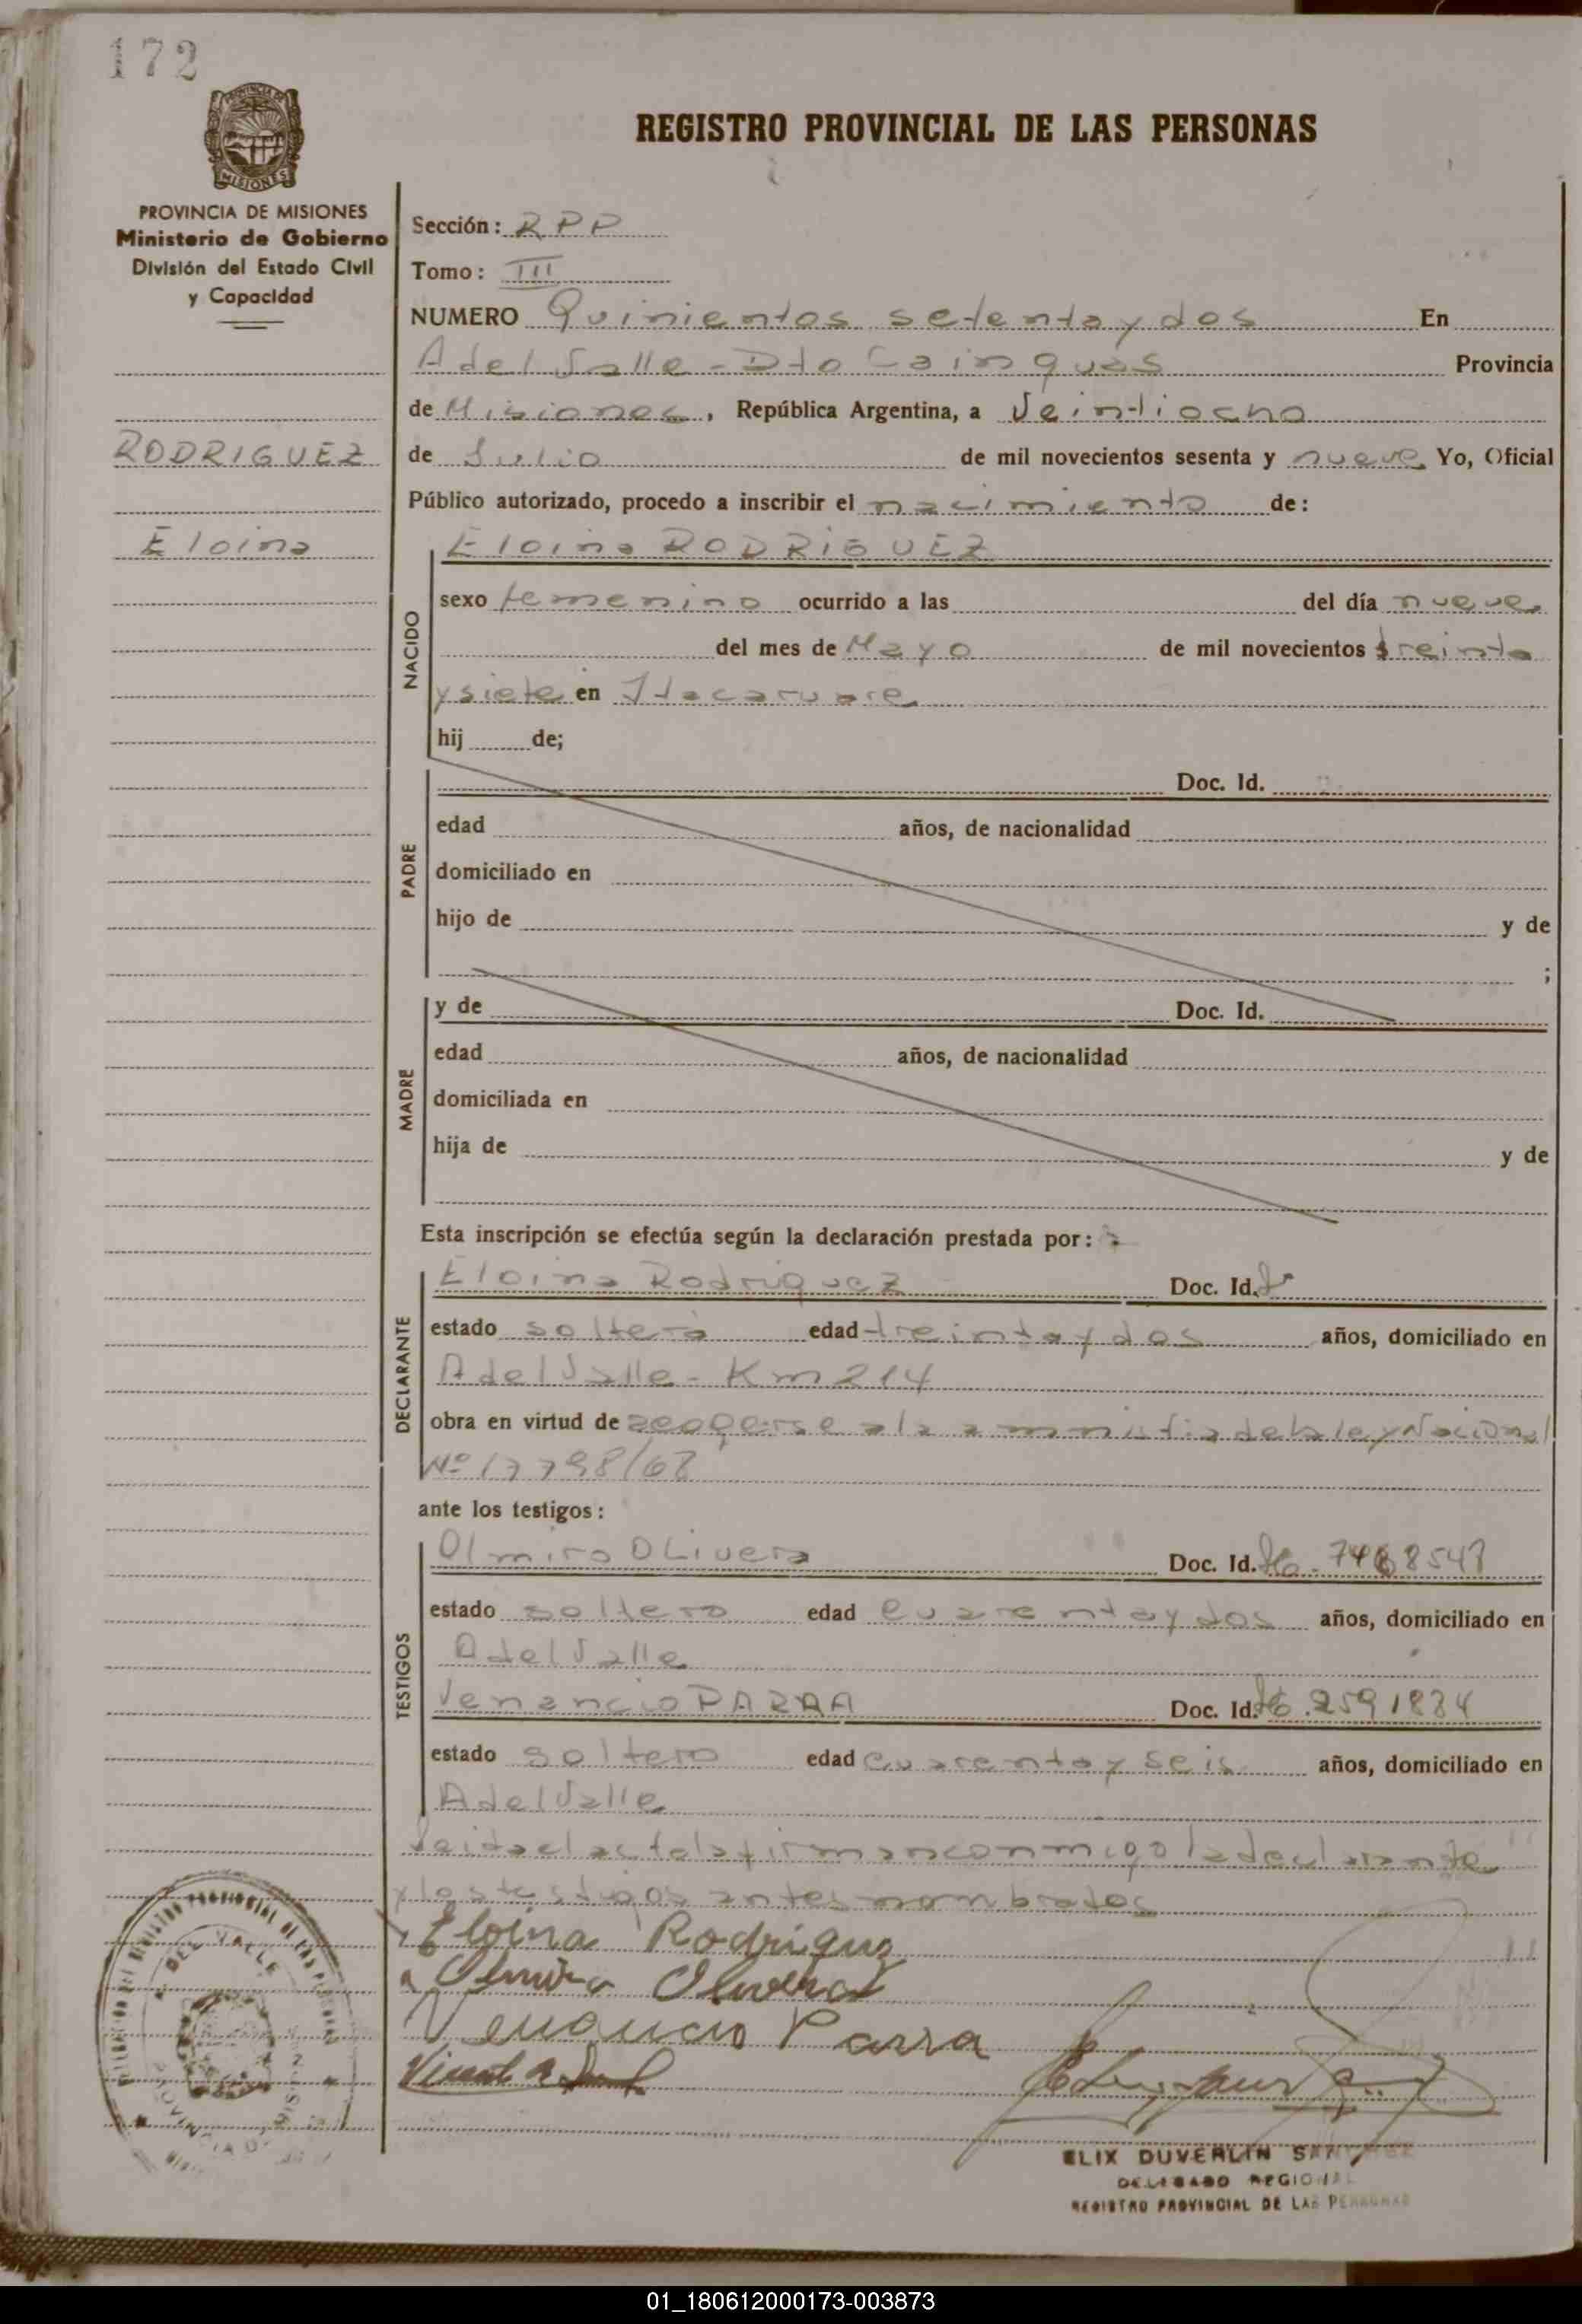 172
MISIONES
REGISTRO PROVINCIAL DE LAS PERSONAS
PROVINCIA DE MISIONES
Ministerio de Gobierno
División del Estado Civil
y Capacidad
RODRIGUEZ
Eloina
Sección: RPP
Tomo: III
NUMERO Quinientos setenta y dos En
A del Valle - Dto Cainguas Provincia
de Misiones, República Argentina, a Veintiocho
de Julio de mil novecientos sesenta y nueve Yo, Oficial
Público autorizado, procedo a inscribir el nacimiento de:
Eloina RODRIGUEZ
NACIDO
sexo femenino ocurrido a las del día nueve
del mes de Mayo de mil novecientos treinta
y siete en Itacaruare
hij de;
PADRE
Doc. Id.
edad años, de nacionalidad
domiciliado en
hijo de y de
;
MADRE
y de Doc. Id.
edad años, de nacionalidad
domiciliada en
hija de y de
Esta inscripción se efectúa según la declaración prestada por:
DECLARANTE
Eloina Rodriguez Doc. Id.
estado soltera edad treinta y dos años, domiciliado en
A del Valle - Km 214
obra en virtud de acogerse a la amnistia de la ley Nacional
Nº 17798/68
ante los testigos:
TESTIGOS
Olmiro OLivera Doc. Id.
estado soltero edad cuarenta y dos años, domiciliado en
A del Valle
Venancio PARRA Doc. Id. 2591834
estado soltero edad cuarenta y seis años, domiciliado en
A del Valle
Leida el acta la firman conmigo la declarante
y los testigos antes nombrados
Eloina Rodriguz
Olmiro Olivera
Venancio Parra
DEL VALLE
ELIX DUVERLIN
DELEGADO REGIONAL
REGISTRO PROVINCIAL DE LAS PERSONAS
01_180612000173-003873